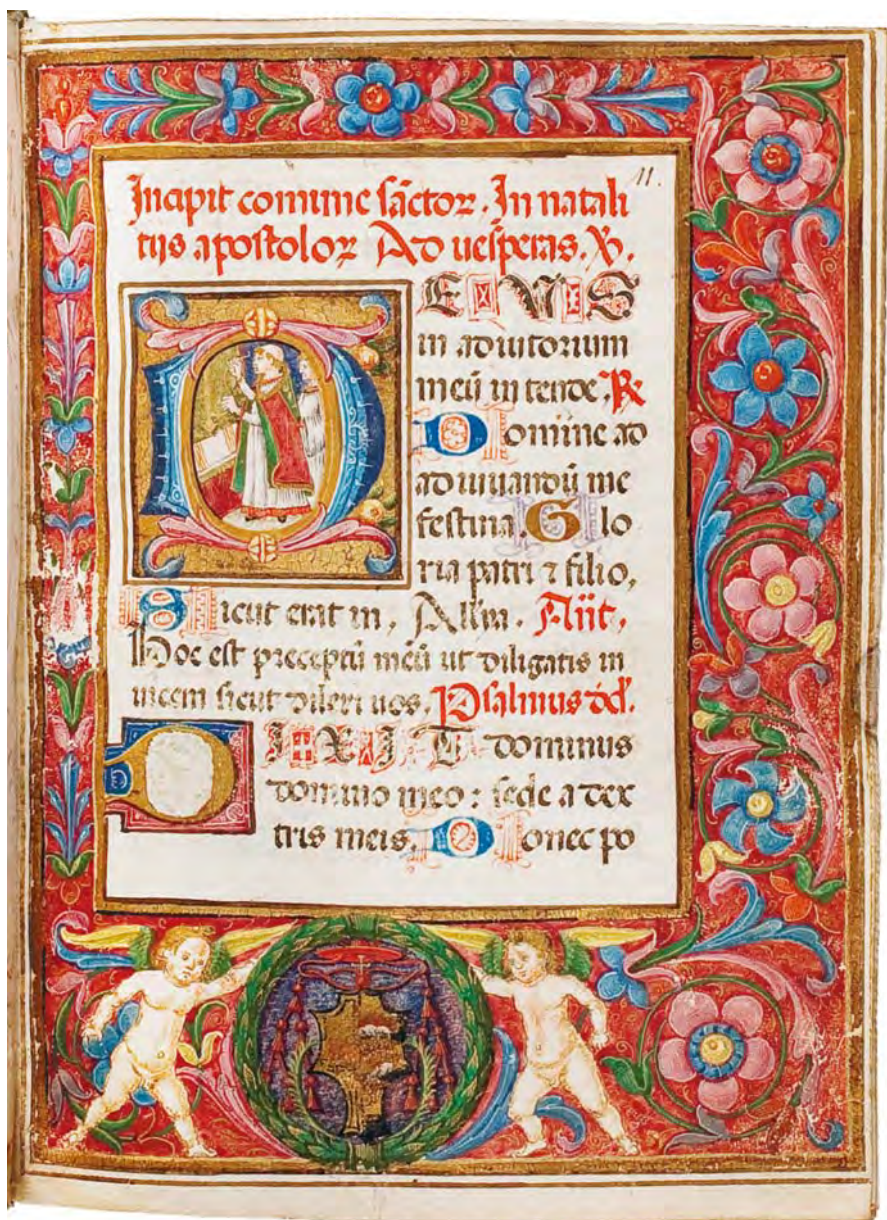 11.
Incipit comune sāctoꝝ. In natali
tijs apostoloꝝ Ad uesperas. ℣.
DEUS
in adiutorium
meū in tende. ℟
Domine ad
ad iuuandū me
festina. Glo
ria patri ⁊ filio,
Sicut erat in, All'ia. Añt,
Hoc est preceptū meū ut diligatis in
uicem sicut dilexi uos. Psalmus dd'.
DIXIT dominus
domino meo: sede a dex
tris meis. Donec po